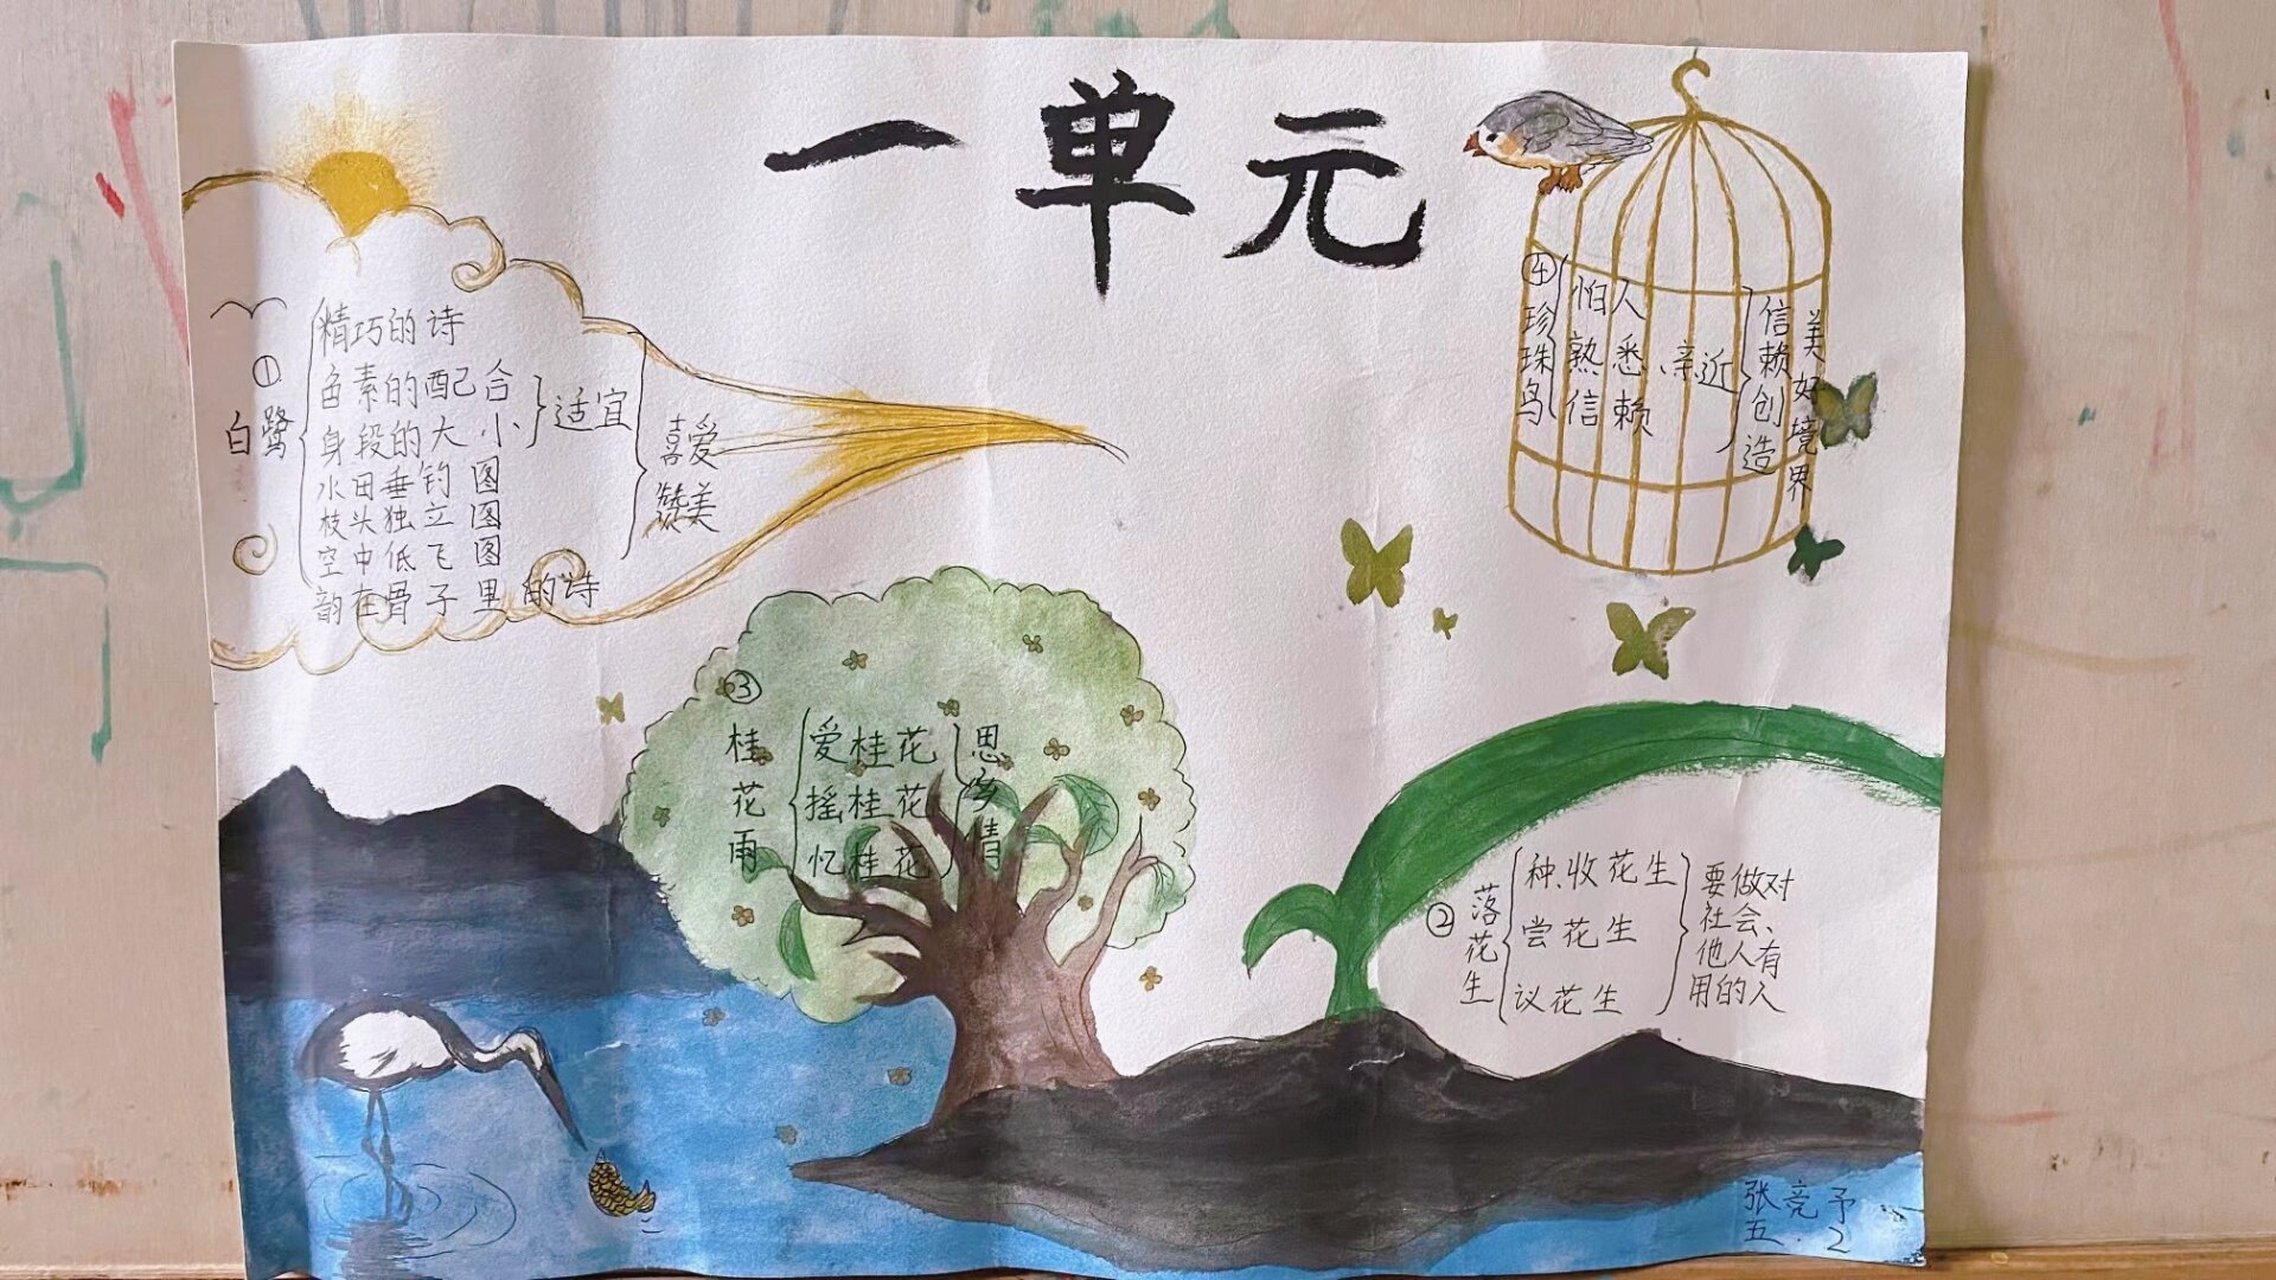 一单元
①
白鹭
精巧的诗
色素的配合
身段的大小
适宜
水田垂钓图
枝头独立图
空中低飞图
韵在骨子里的诗
喜爱
赞美
②
落花生
种、收花生
尝花生
议花生
要做对
社会、
他人有
用的人
③
桂花雨
爱桂花
摇桂花
忆桂花
思乡情
④
珍珠鸟
怕人
熟悉
信赖
亲近
信赖
创造
美好境界
张竞予
五.2